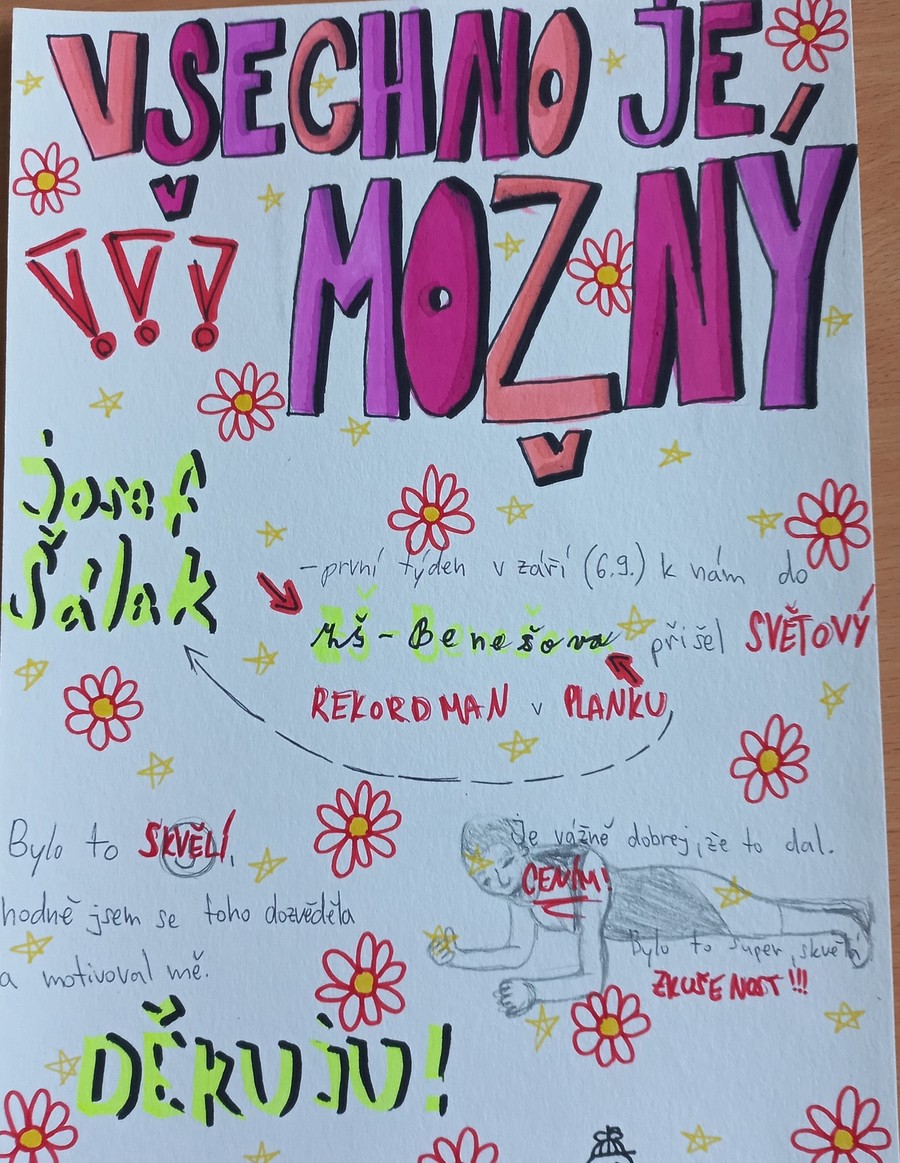 VŠECHNO JE
MOŽNÝ
!!!
Josef
Šálak
- první týden v září (6.9.) k nám do
ZŠ - Benešova přišel SVĚTOVÝ
REKORDMAN v PLANKU
Bylo to SKVĚLÍ,
hodně jsem se toho dozvěděla
a motivoval mě.
Je vážně dobrej, že to dal.
CENÍM!
Bylo to super, skvělá
ZKUŠENOST!!!
DĚKUJU!